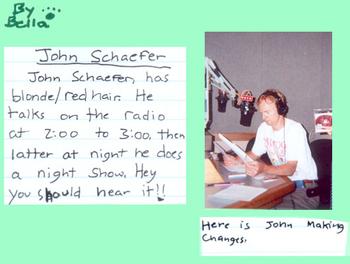 By
Bella
John Schaefer
John Schaefer, has
blonde/red hair. He
talks on the radio
at 2:00 to 3:00, then
latter at night he does
a night show. Hey
you should hear it!!
Here is John Making
Changes.